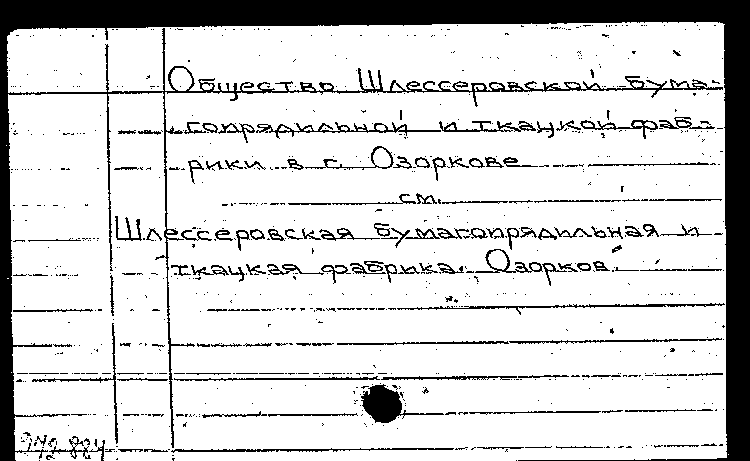 Общество Шлессеровской бума-
гопрядильной и ткацкой фаб-
рики в г. Озоркове
см.
Шлессеровская бумагопрядильная и
ткацкая фабрика. Озорков.